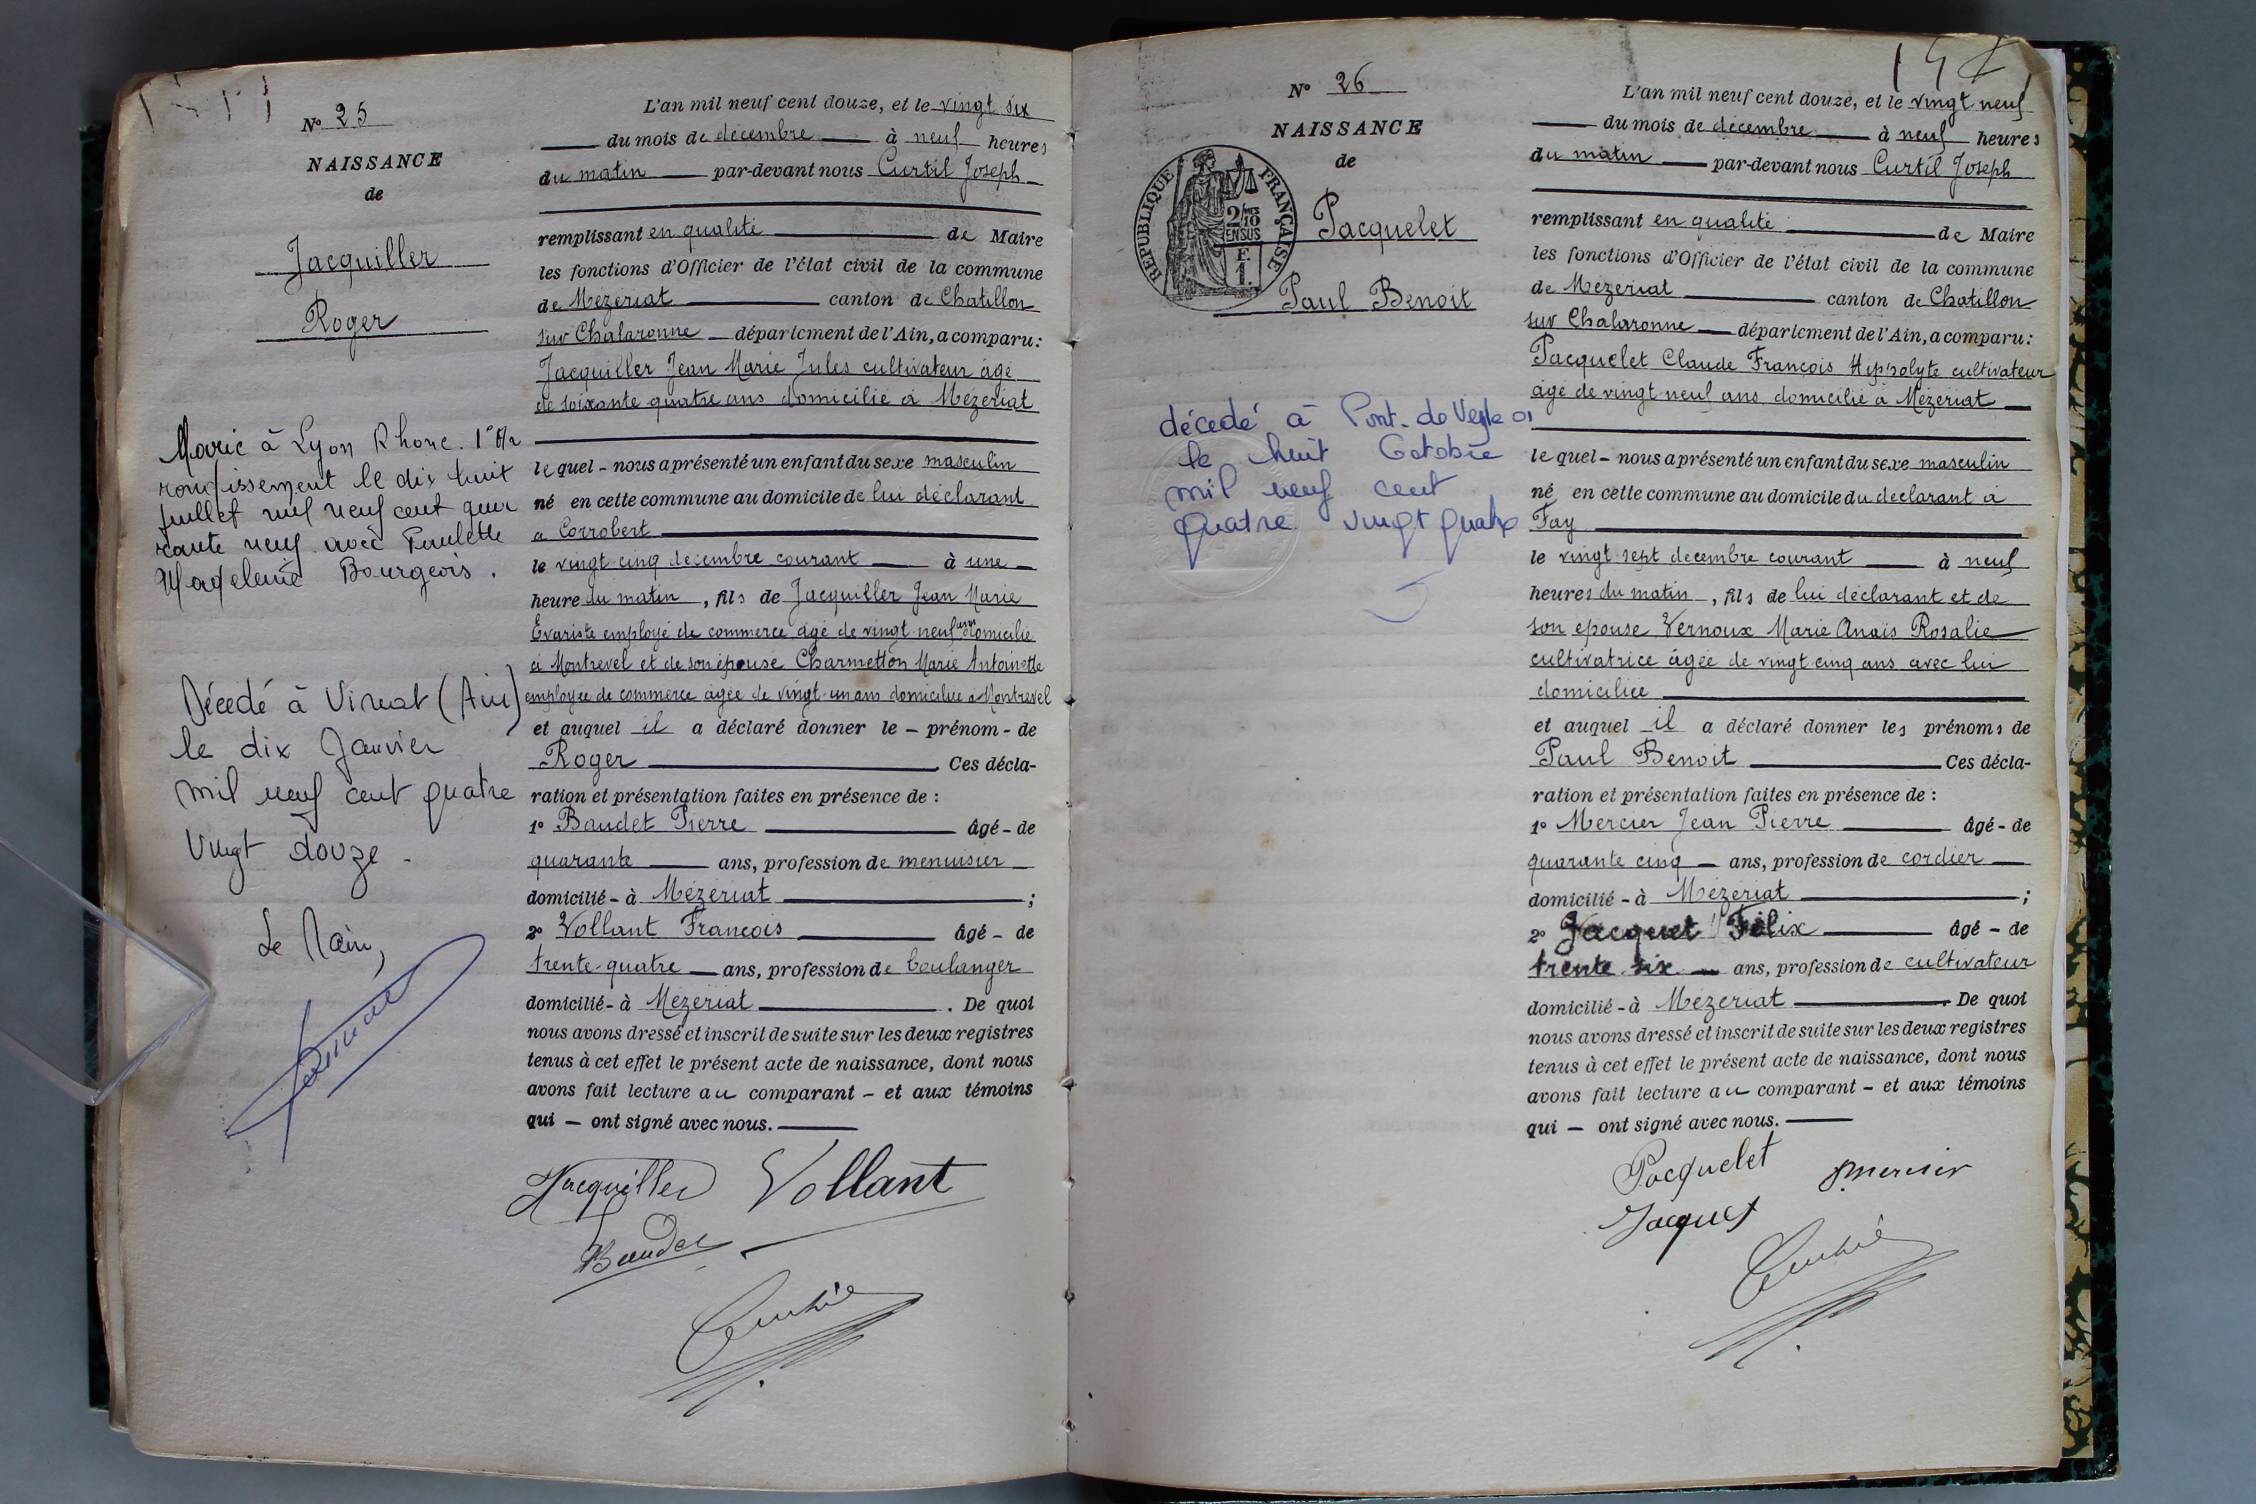 N° 25
NAISSANCE
de
Jacquiller
Roger
Marié à Lyon Rhone. 1er Ar
rondissement le dix huit
juillet mil neuf cent qua
rante neuf avec Paulette
Madeleine Bourgeois.
Décédé à Viriat (Ain)
le dix Janvier
mil neuf cent quatre
vingt douze.
Le Maire,
L'an mil neuf cent douze, et le vingt six
du mois de décembre à neuf heures
du matin par-devant nous Curtil Joseph
remplissant en qualité de Maire
les fonctions d'Officier de l'état civil de la commune
de Mézériat canton de Chatillon
sur Chalaronne département de l'Ain, a comparu:
Jacquiller Jean Marie Jules cultivateur âgé
de soixante quatre ans domicilié à Mézériat
lequel - nous a présenté un enfant du sexe masculin
né en cette commune au domicile de lui déclarant
à Corrobert
le vingt cinq décembre courant à une
heure du matin, fils de Jacquiller Jean Marie
Évariste employé de commerce âgé de vingt neuf ans domicilié
à Montrevel et de son épouse Charmetton Marie Antoinette
employée de commerce âgée de vingt-un ans domiciliée à Montrevel
et auquel il a déclaré donner le - prénom - de
Roger Ces décla-
ration et présentation faites en présence de :
1° Baudet Pierre âgé - de
quarante ans, profession de menuisier
domicilié - à Mézériat ;
2° Vollant François âgé - de
trente-quatre ans, profession de boulanger
domicilié - à Mézériat . De quoi
nous avons dressé et inscrit de suite sur les deux registres
tenus à cet effet le présent acte de naissance, dont nous
avons fait lecture au comparant - et aux témoins
qui - ont signé avec nous.
Jacquiller Vollant
Baudet
Curtil
N° 26
NAISSANCE
de
RÉPUBLIQUE FRANÇAISE
2/10 EN SUS
F.
1.
Pacquelet
Paul Benoit
décédé à Pont-de-Veyle 01
le huit Octobre
mil neuf cent
quatre vingt quatre
L'an mil neuf cent douze, et le vingt neuf
du mois de décembre à neuf heures
du matin par-devant nous Curtil Joseph
remplissant en qualité de Maire
les fonctions d'Officier de l'état civil de la commune
de Mézériat canton de Chatillon
sur Chalaronne département de l'Ain, a comparu:
Pacquelet Claude François Hyppolyte cultivateur
âgé de vingt-neuf ans domicilié à Mézériat
lequel - nous a présenté un enfant du sexe masculin
né en cette commune au domicile du déclarant à
Fay
le vingt sept décembre courant à neuf
heures du matin, fils de lui déclarant et de
son épouse Vernoux Marie Anaïs Rosalie
cultivatrice âgée de vingt cinq ans avec lui
domiciliée
et auquel il a déclaré donner les prénoms de
Paul Benoit Ces décla-
ration et présentation faites en présence de :
1° Mercier Jean Pierre âgé - de
quarante cinq ans, profession de cordier
domicilié - à Mézériat ;
2° Jacquet Félix âgé - de
trente six ans, profession de cultivateur
domicilié - à Mézériat . De quoi
nous avons dressé et inscrit de suite sur les deux registres
tenus à cet effet le présent acte de naissance, dont nous
avons fait lecture au comparant - et aux témoins
qui - ont signé avec nous.
Pacquelet Mercier
Jacquet
Curtil